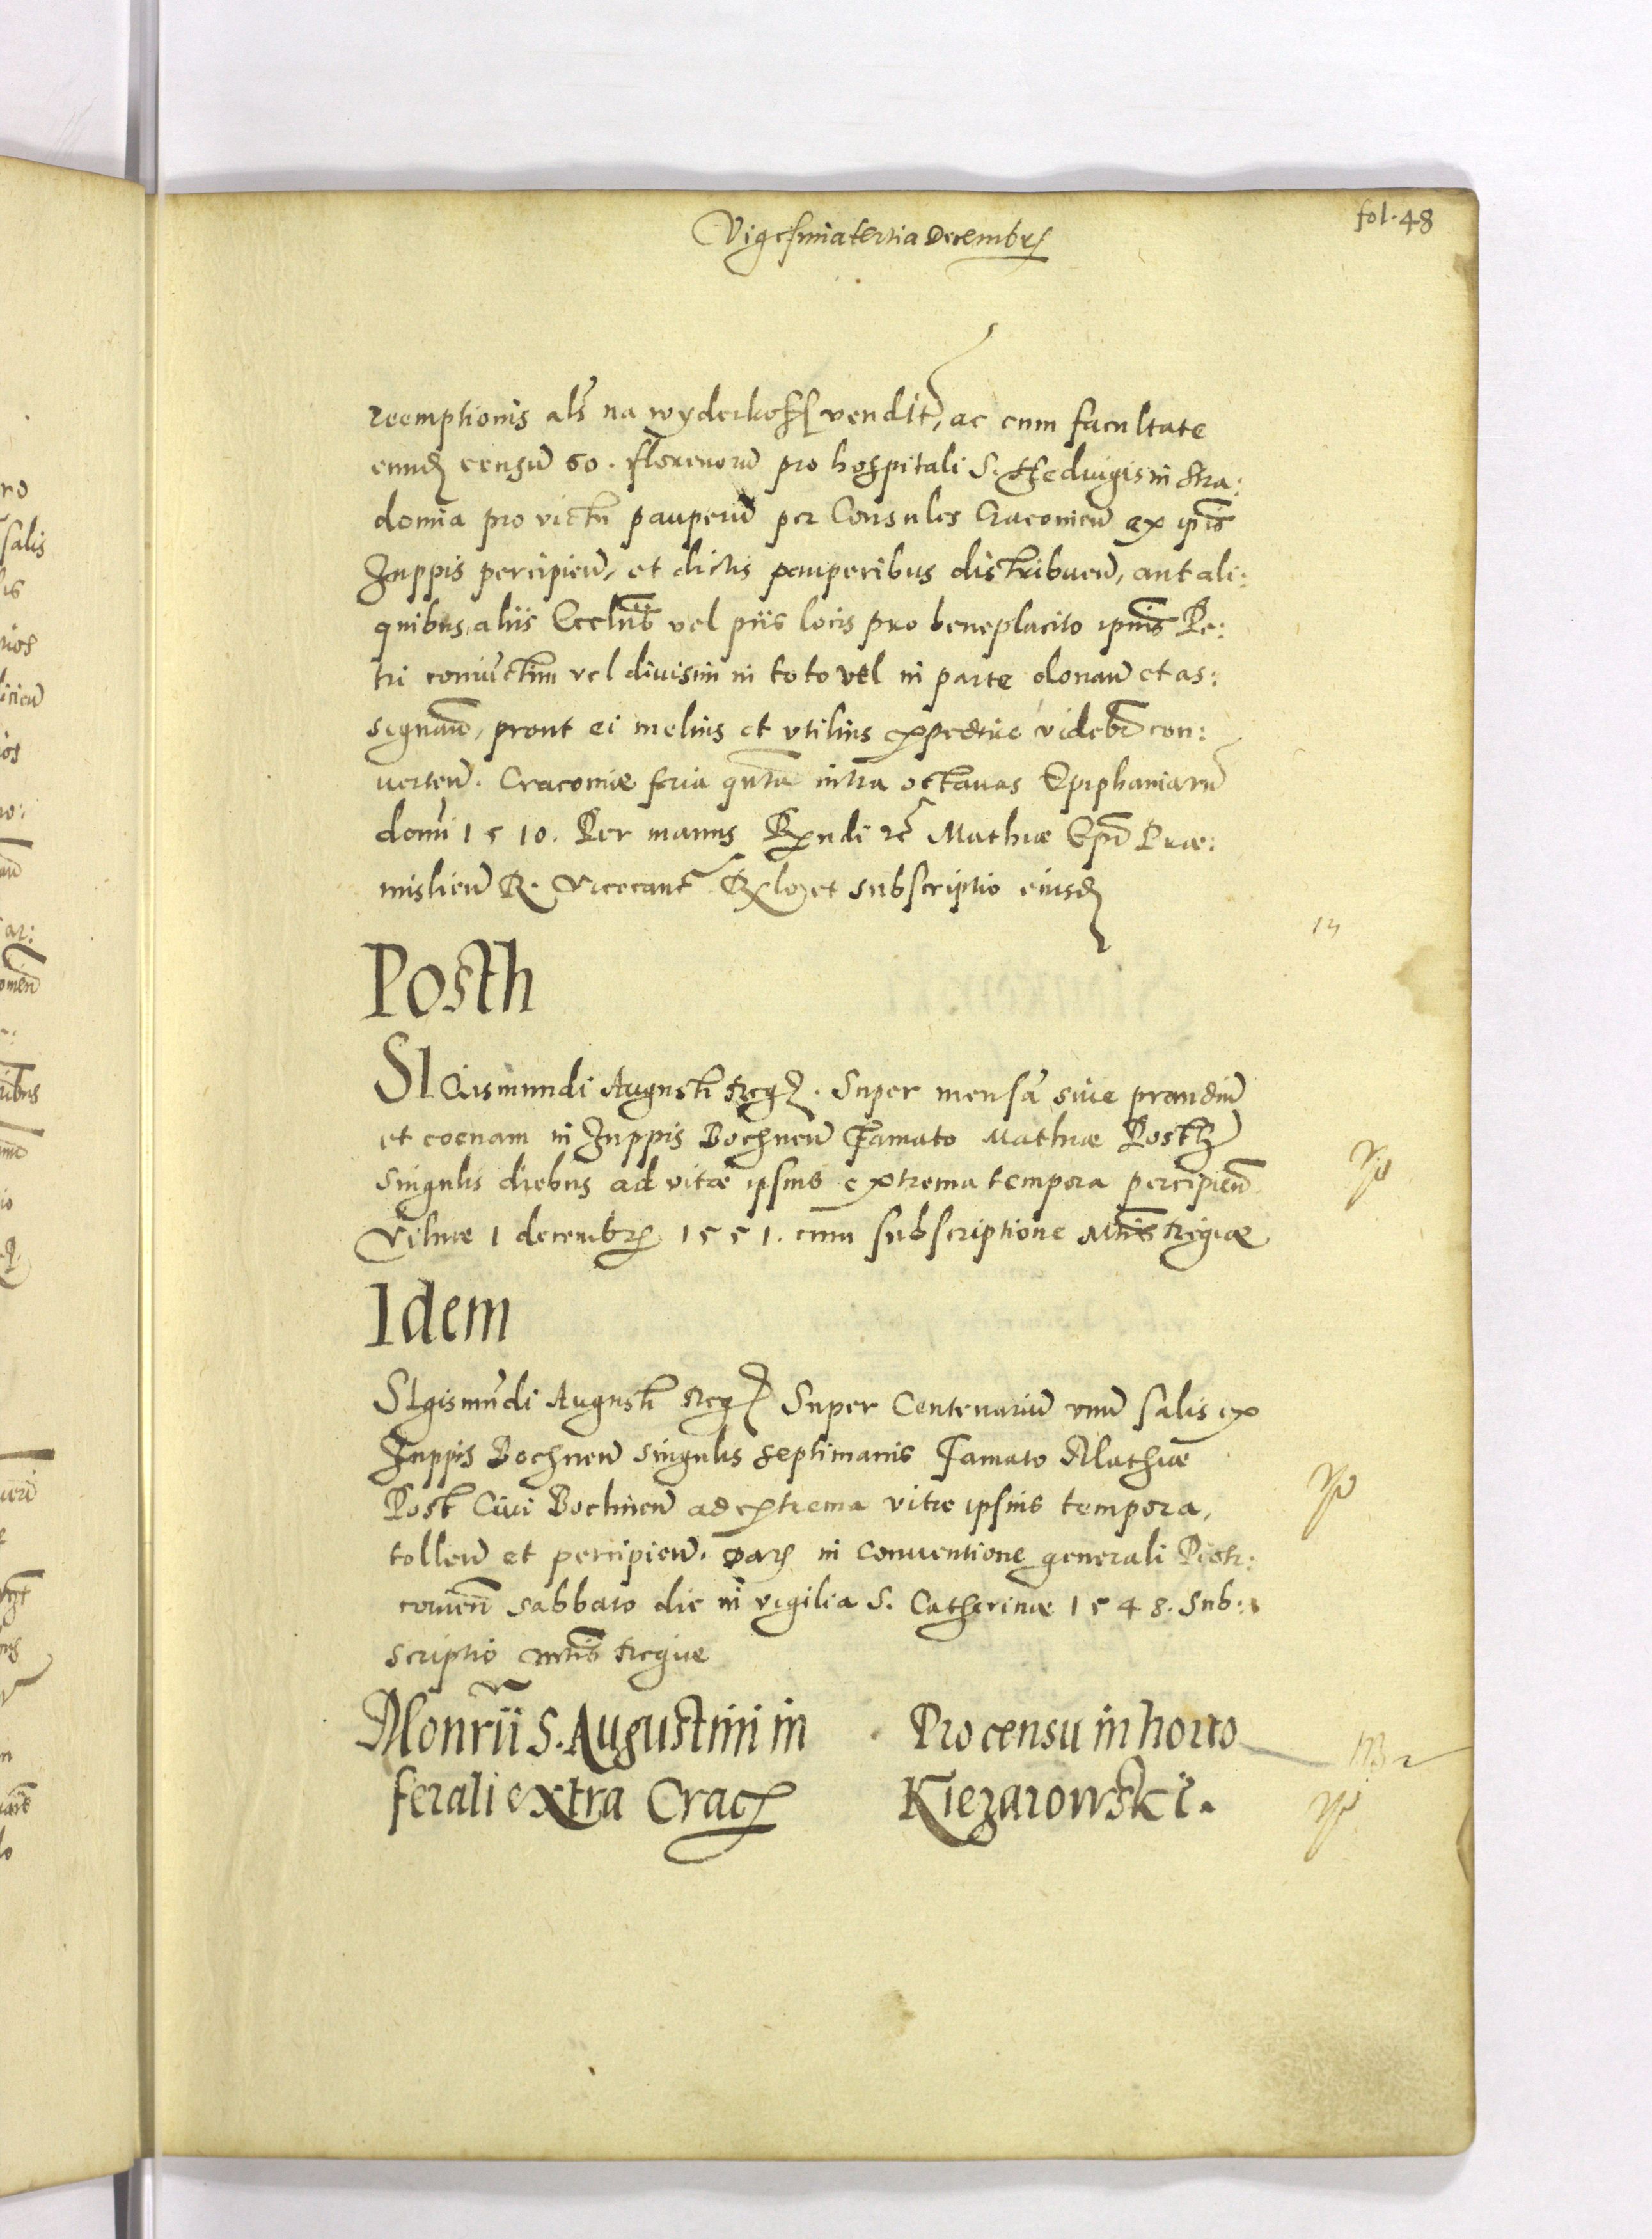 fol. 48
Vigesimatertia Decembr
reemptionis als na wyderkoff vendit, ac cum facultate
eund censũ 60. florenorũ pro hospitali S. Hedvigis in Stra:
domia pro victu pauperũ per Consules Cracovieñ ex ipīs
Zuppis percipieñ, et dictis pauperibus distribueñ, aut ali:
quibus aliis Ecclīīs vel piis locis pro beneplacito ipīus Pe:
tri coniũctim vel divisim in toto vel in parte donañ et as:
signañ, prout ei melius et utilius expedire videbit con:
verteñ. Cracoviæ feria quīta intra octavas Epiphaniarũ
domī 1510. Per manus Rndi Mathiæ Epī Præ:
mislieñ R. Vicecanc et subscriptio eiusd
Posth
SIGismundi Augusti Reg. Super mensã sive prandiũ
et coenam in Zuppis Bochneñ Famato Mathiæ Posth
singulis diebus ad vitæ ipsius extrema tempora percipieñ
Vilnæ 1 decembr 1551. cum subscriptione Mtīs Regiæ
Idem
SIgismũdi Augusti Reg Super Centenariũ unũ salis ex
Zuppis Bochneñ singulis septimanis Famato Mathiæ
Post Civi Bochneñ ad extrema vitæ ipsius tempora,
tolleñ et percipieñ. Dat in conventione generali Piotr:
covieñ sabbato die in vigilia S. Catherinæ 1548. Sub:
scriptio Mtīs Regiæ
Monrii S. Augustini in Pro censu in horto
ferali extra Crac Kiezarowski.